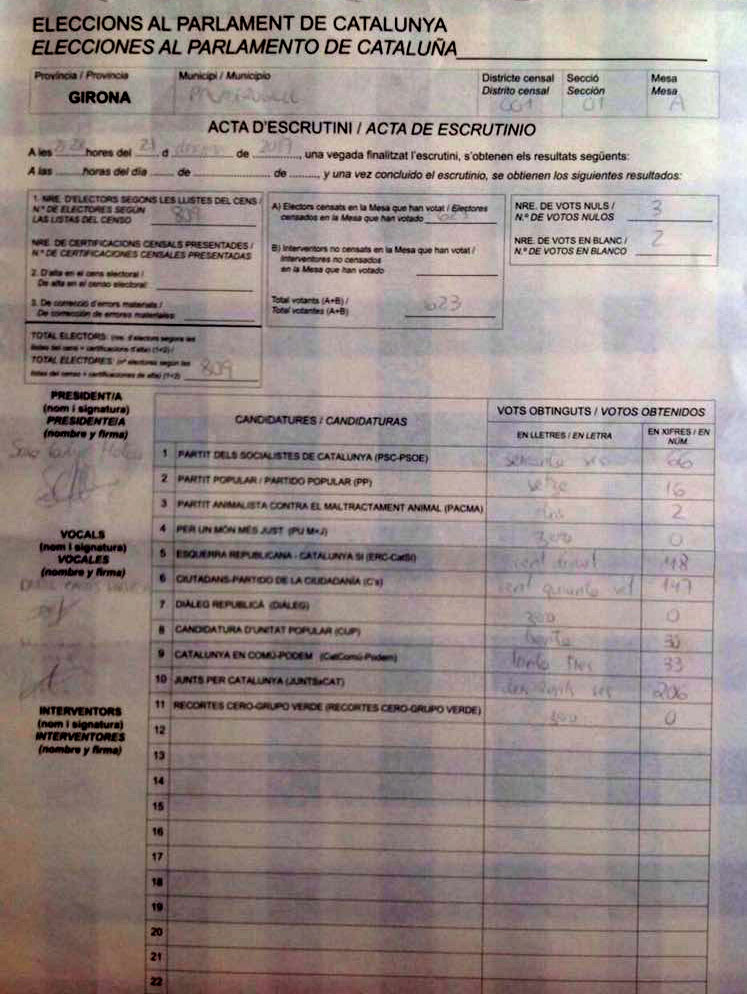 ELECCIONS AL PARLAMENT DE CATALUNYA
ELECCIONES AL PARLAMENTO DE CATALUÑA
Província / Provincia Municipi / Municipio Districte censal Secció Mesa
Distrito censal Sección Mesa
GIRONA 001 01 A
ACTA D'ESCRUTINI / ACTA DE ESCRUTINIO
A les hores del 21 d de 2017, una vegada finalitzat l'escrutini, s'obtenen els resultats següents:
A las horas del día de de, y una vez concluido el escrutinio, se obtienen los siguientes resultados:
1. NRE. D'ELECTORS SEGONS LES LLISTES DEL CENS /
N.º DE ELECTORES SEGÚN
LAS LISTAS DEL CENSO 809
NRE. DE CERTIFICACIONS CENSALS PRESENTADES /
N.º DE CERTIFICACIONES CENSALES PRESENTADAS
2. D'alta en el cens electoral /
De alta en el censo electoral:
3. De correcció d'errors materials /
De corrección de errores materiales:
TOTAL ELECTORS: (nre. d'electors segons les
llistes del cens + certificacions d'alta) (1+2) /
TOTAL ELECTORES: (nº electores según las
listas del censo + certificaciones de alta) (1+2) 809
A) Electors censats en la Mesa que han votat / Electores
censados en la Mesa que han votado
B) Interventors no censats en la Mesa que han votat /
Interventores no censados
en la Mesa que han votado
Total votants (A+B) /
Total votantes (A+B) 623
NRE. DE VOTS NULS / 3
N.º DE VOTOS NULOS
NRE. DE VOTS EN BLANC / 2
N.º DE VOTOS EN BLANCO
PRESIDENT/A
(nom i signatura)
PRESIDENTE/A
(nombre y firma)
VOCALS
(nom i signatura)
VOCALES
(nombre y firma)
INTERVENTORS
(nom i signatura)
INTERVENTORES
(nombre y firma)
CANDIDATURES / CANDIDATURAS VOTS OBTINGUTS / VOTOS OBTENIDOS
EN LLETRES / EN LETRA EN XIFRES / EN NÚM.
1 PARTIT DELS SOCIALISTES DE CATALUNYA (PSC-PSOE) 66
2 PARTIT POPULAR / PARTIDO POPULAR (PP) setze 16
3 PARTIT ANIMALISTA CONTRA EL MALTRACTAMENT ANIMAL (PACMA) dos 2
4 PER UN MÓN MÉS JUST (PUM+J) zero 0
5 ESQUERRA REPUBLICANA - CATALUNYA SÍ (ERC-CatSí)
6 CIUTADANS-PARTIDO DE LA CIUDADANÍA (C's) 147
7 DIÀLEG REPUBLICÀ (DIÀLEG) zero 0
8 CANDIDATURA D'UNITAT POPULAR (CUP)
9 CATALUNYA EN COMÚ-PODEM (CatComú-Podem) 33
10 JUNTS PER CATALUNYA (JUNTSxCAT) 206
11 RECORTES CERO-GRUPO VERDE (RECORTES CERO-GRUPO VERDE) zero 0
12
13
14
15
16
17
18
19
20
21
22